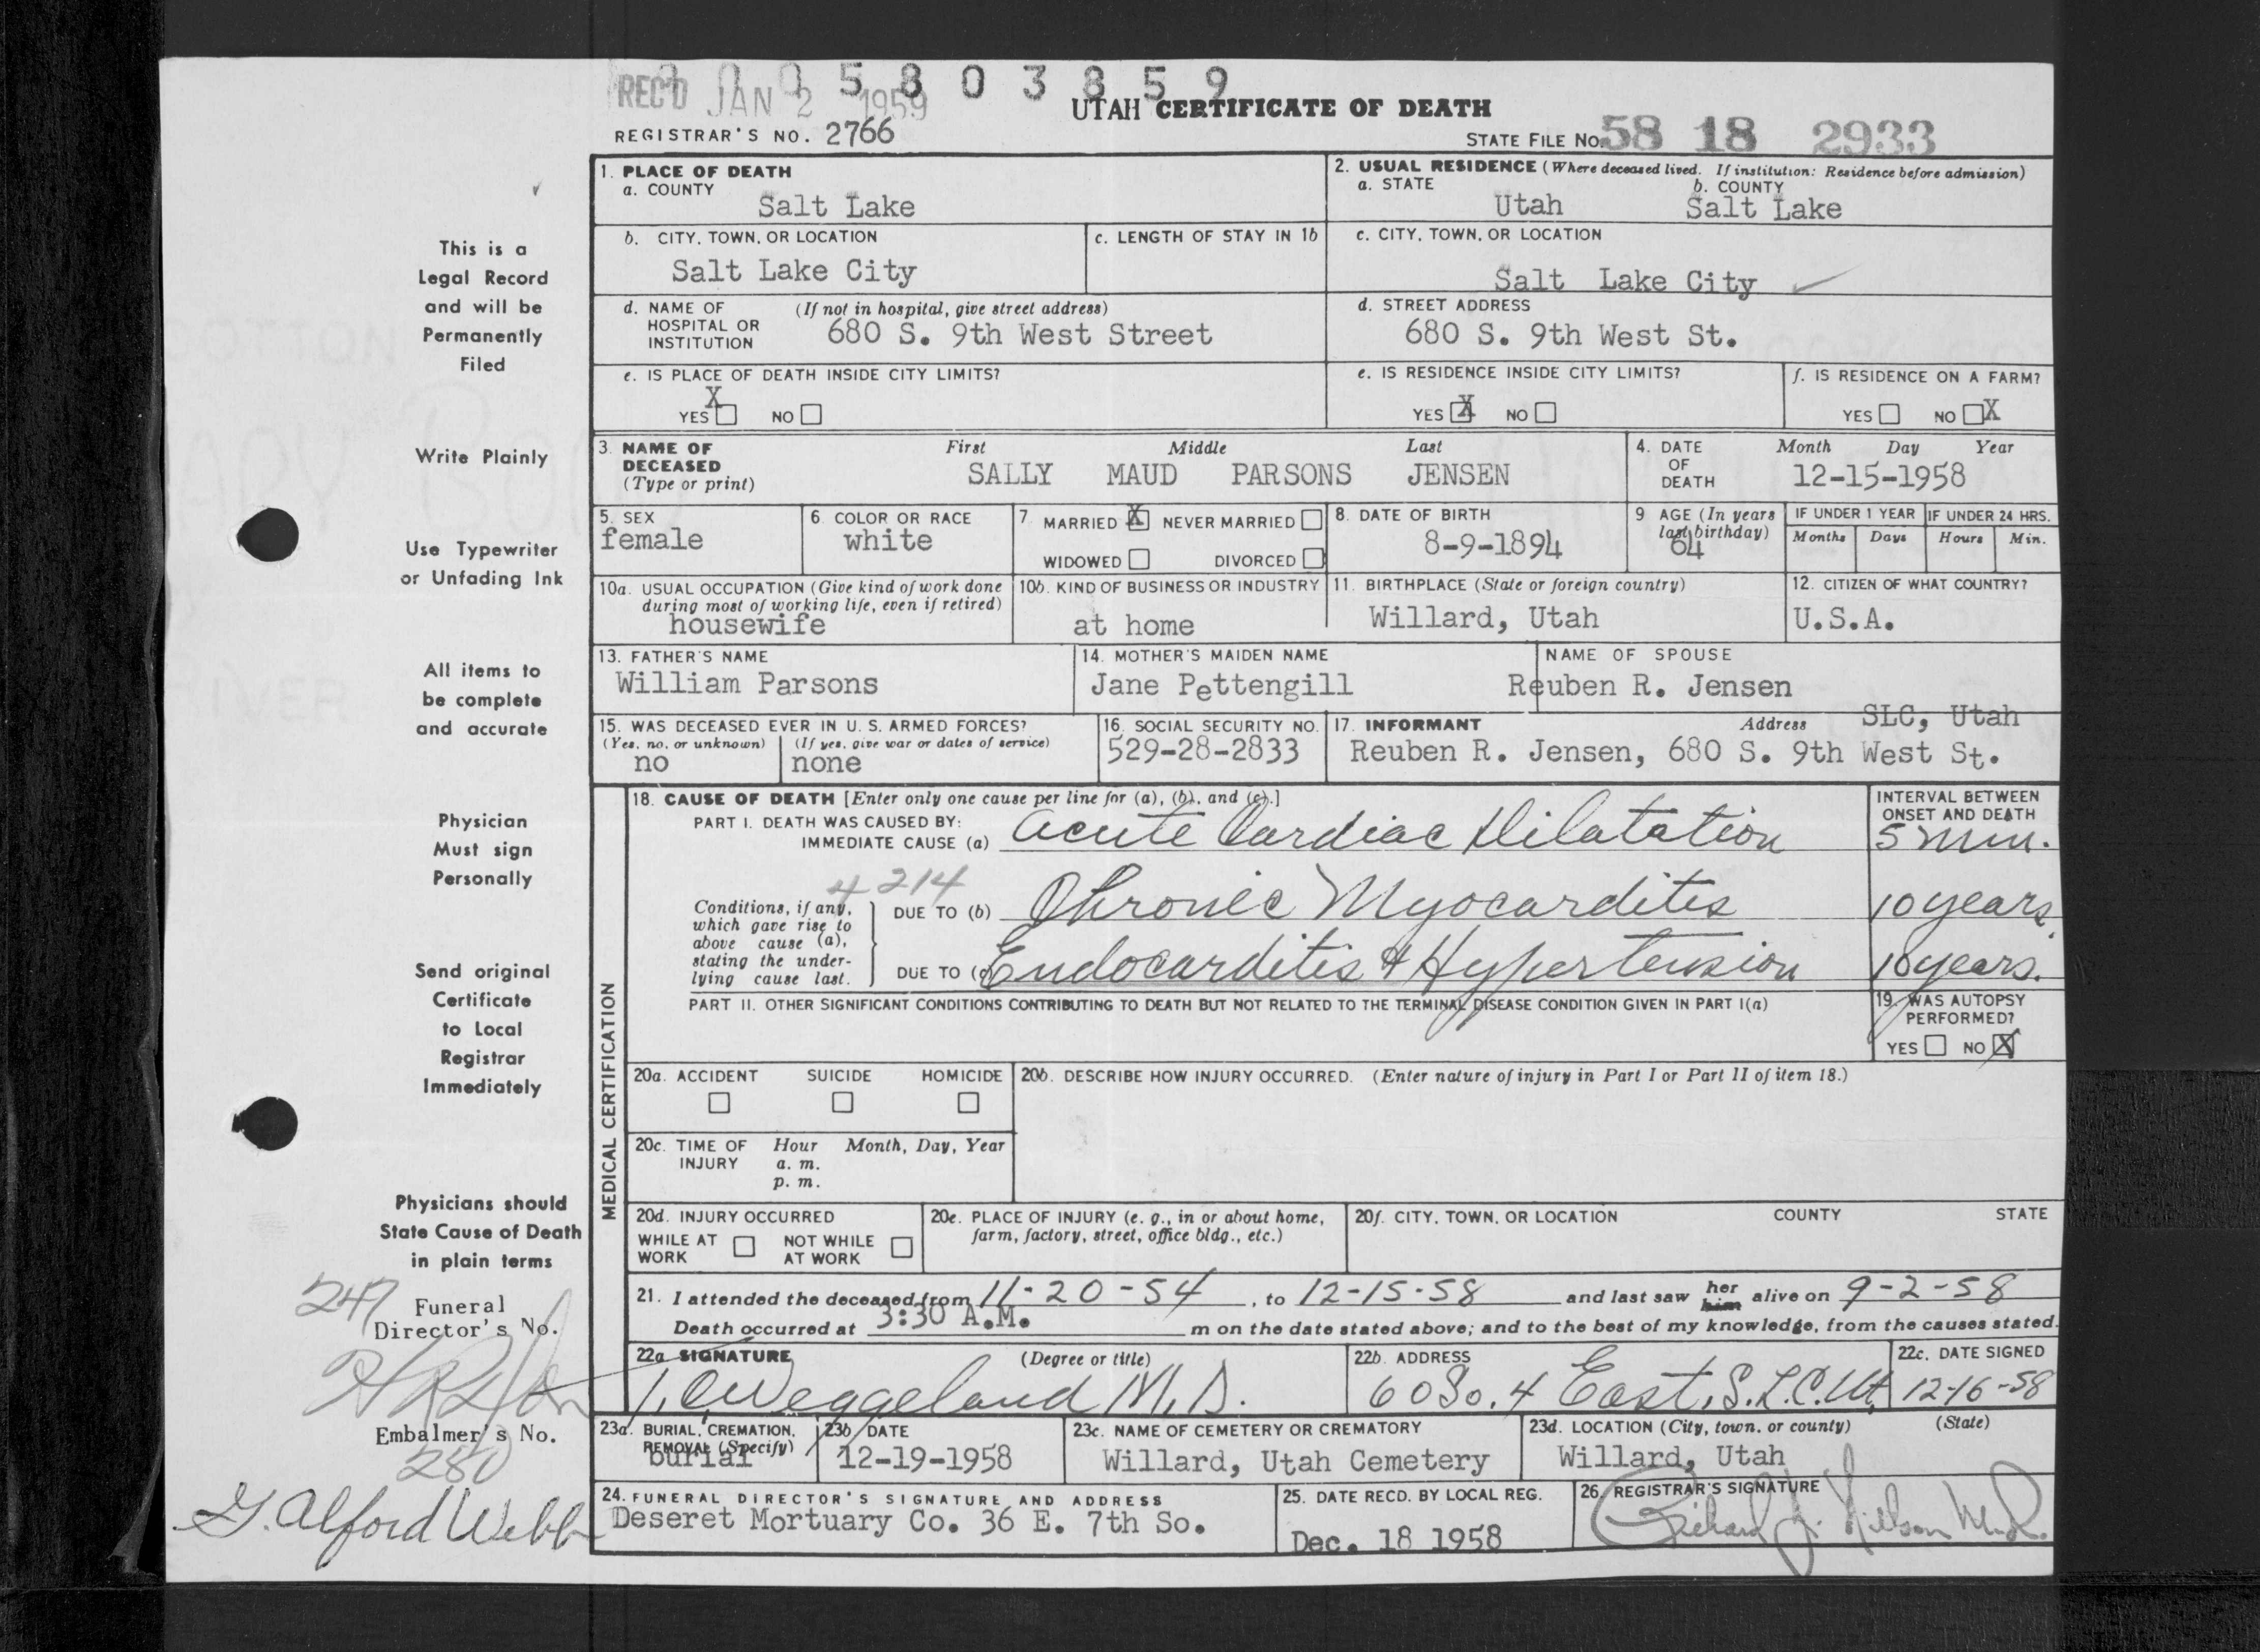 0 0 0 5 8 0 3 8 5 9
REC'D JAN 2 1959
UTAH CERTIFICATE OF DEATH
REGISTRAR'S NO. 2766
STATE FILE NO. 58 18 2933
1. PLACE OF DEATH
a. COUNTY
Salt Lake
2. USUAL RESIDENCE (Where deceased lived. If institution: Residence before admission)
a. STATE b. COUNTY
Utah Salt Lake
b. CITY, TOWN, OR LOCATION
Salt Lake City
c. LENGTH OF STAY IN 1b
c. CITY, TOWN, OR LOCATION
Salt Lake City
d. NAME OF HOSPITAL OR INSTITUTION (If not in hospital, give street address)
680 S. 9th West Street
d. STREET ADDRESS
680 S. 9th West St.
e. IS PLACE OF DEATH INSIDE CITY LIMITS?
X
YES NO
e. IS RESIDENCE INSIDE CITY LIMITS?
YES X NO
f. IS RESIDENCE ON A FARM?
YES NO X
3. NAME OF DECEASED (Type or print)
First Middle Last
SALLY MAUD PARSONS JENSEN
4. DATE OF DEATH
Month Day Year
12-15-1958
5. SEX
female
6. COLOR OR RACE
white
7. MARRIED X NEVER MARRIED
WIDOWED DIVORCED
8. DATE OF BIRTH
8-9-1894
9 AGE (In years last birthday)
64
IF UNDER 1 YEAR
Months Days
IF UNDER 24 HRS.
Hours Min.
10a. USUAL OCCUPATION (Give kind of work done during most of working life, even if retired)
housewife
10b. KIND OF BUSINESS OR INDUSTRY
at home
11. BIRTHPLACE (State or foreign country)
Willard, Utah
12. CITIZEN OF WHAT COUNTRY?
U.S.A.
13. FATHER'S NAME
William Parsons
14. MOTHER'S MAIDEN NAME
Jane Pettengill
NAME OF SPOUSE
Reuben R. Jensen
15. WAS DECEASED EVER IN U. S. ARMED FORCES?
(Yes, no, or unknown) (If yes, give war or dates of service)
no none
16. SOCIAL SECURITY NO.
529-28-2833
17. INFORMANT Address SLC, Utah
Reuben R. Jensen, 680 S. 9th West St.
MEDICAL CERTIFICATION
18. CAUSE OF DEATH [Enter only one cause per line for (a), (b), and (c).]
PART I. DEATH WAS CAUSED BY:
IMMEDIATE CAUSE (a) Acute Cardiac Dilatation
INTERVAL BETWEEN ONSET AND DEATH
5 min.
4214
Conditions, if any, which gave rise to above cause (a), stating the underlying cause last.
DUE TO (b) Chronic Myocarditis 10 years,
DUE TO (c) Endocarditis & Hypertension 10 years.
PART II. OTHER SIGNIFICANT CONDITIONS CONTRIBUTING TO DEATH BUT NOT RELATED TO THE TERMINAL DISEASE CONDITION GIVEN IN PART I(a)
19. WAS AUTOPSY PERFORMED?
YES NO X
20a. ACCIDENT SUICIDE HOMICIDE
20b. DESCRIBE HOW INJURY OCCURRED. (Enter nature of injury in Part I or Part II of item 18.)
20c. TIME OF INJURY
Hour Month, Day, Year
a. m.
p. m.
20d. INJURY OCCURRED
WHILE AT WORK NOT WHILE AT WORK
20e. PLACE OF INJURY (e. g., in or about home, farm, factory, street, office bldg., etc.)
20f. CITY, TOWN, OR LOCATION COUNTY STATE
21. I attended the deceased from 11-20-54, to 12-15-58 and last saw her him alive on 9-2-58
Death occurred at 3:30 A.M. m on the date stated above; and to the best of my knowledge, from the causes stated.
22a SIGNATURE (Degree or title)
Weggeland M.D.
22b. ADDRESS
60 So. 4 East, S.L.C. Ut.
22c. DATE SIGNED
12-16-58
23a. BURIAL, CREMATION, REMOVAL (Specify)
burial
23b DATE
12-19-1958
23c. NAME OF CEMETERY OR CREMATORY
Willard, Utah Cemetery
23d. LOCATION (City, town, or county) (State)
Willard, Utah
24. FUNERAL DIRECTOR'S SIGNATURE AND ADDRESS
Deseret Mortuary Co. 36 E. 7th So.
25. DATE RECD. BY LOCAL REG.
Dec. 18 1958
26. REGISTRAR'S SIGNATURE
Richard J. Nilson M.D.
This is a
Legal Record
and will be
Permanently
Filed
Write Plainly
Use Typewriter
or Unfading Ink
All items to
be complete
and accurate
Physician
Must sign
Personally
Send original
Certificate
to Local
Registrar
Immediately
Physicians should
State Cause of Death
in plain terms
247
Funeral
Director's No.
Embalmer's No.
280
G. Alford Webb